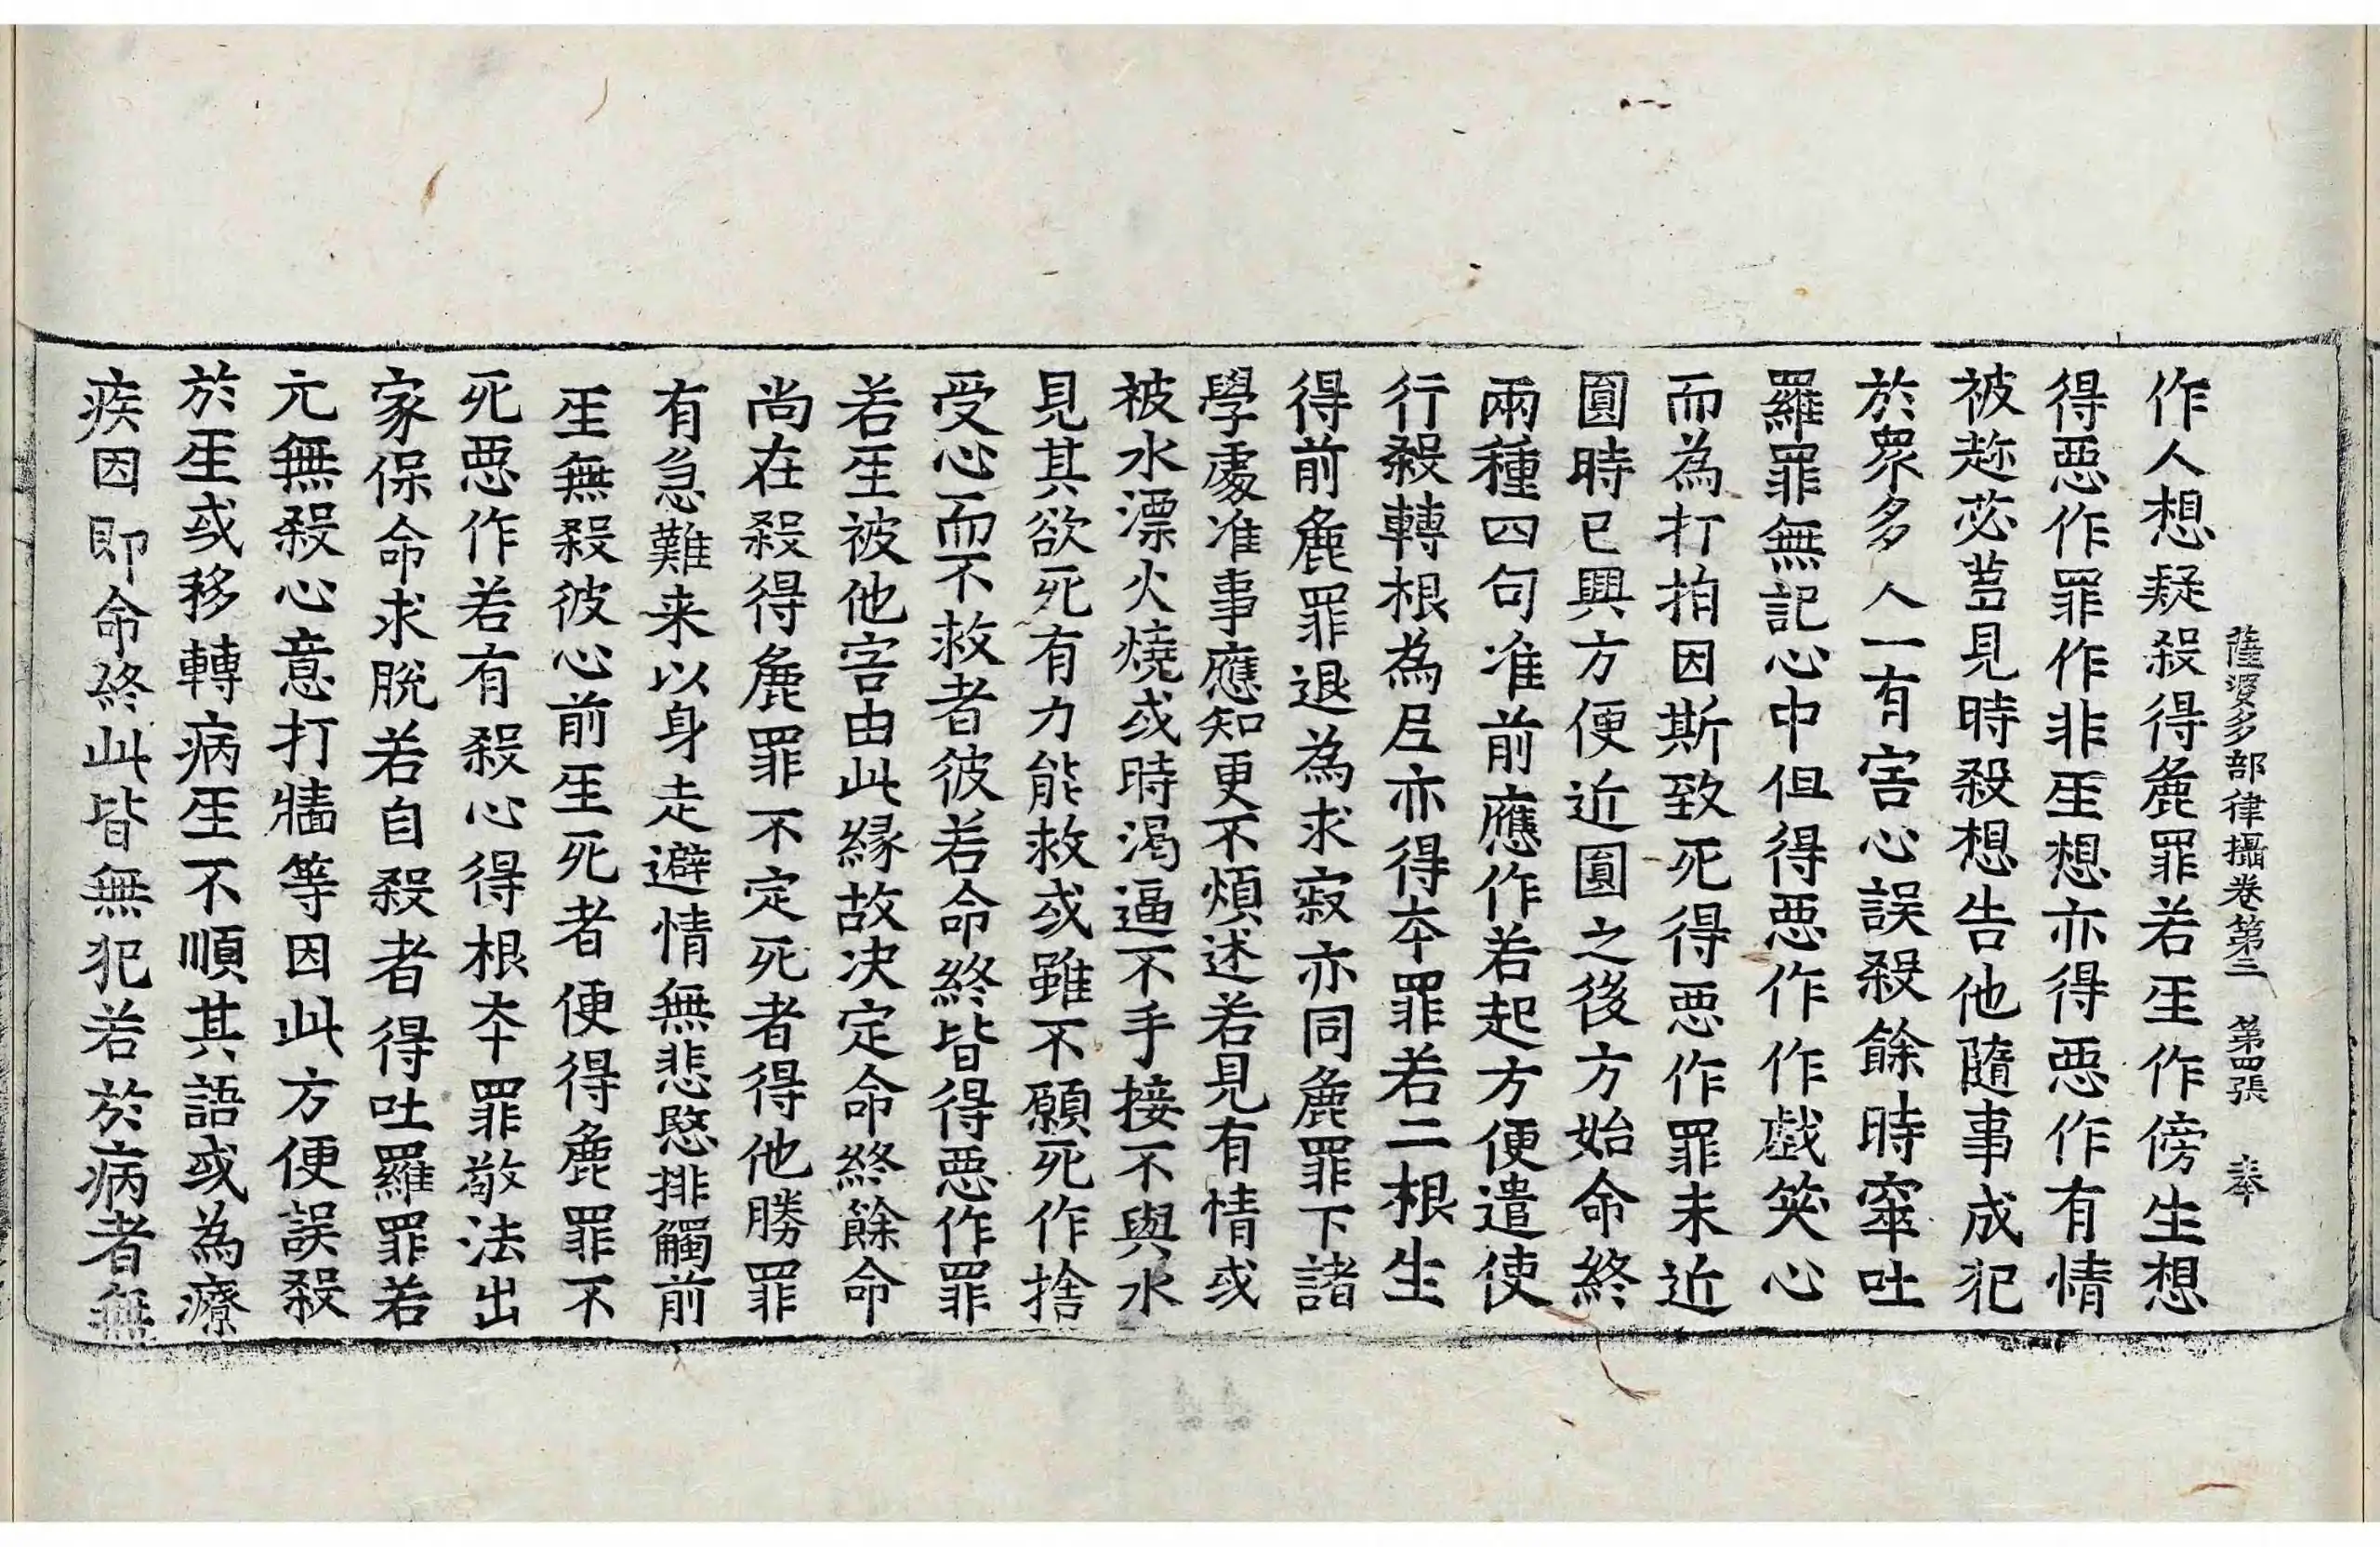 薩婆多部律攝卷第三 第四張 奉
作人想疑殺得麁罪若𤯔作傍生想
得惡作罪作非𤯔想亦得惡作有情
被趂苾芻見時殺想告他隨事成犯
於衆多人一有害心誤殺餘時窣吐
羅罪無記心中但得惡作作戲笑心
而為打拍因斯致死得惡作罪未近
圓時已興方便近圓之後方始命終
兩種四句准前應作若起方便遣使
行殺轉根為尼亦得夲罪若二根生
得前麁罪退為求寂亦同麁罪下諸
學處准事應知更不煩述若見有情或
被水漂火燒或時渴逼不手接不與水
見其欲死有力能救或雖不願死作捨
受心而不救者彼若命終皆得惡作罪
若𤯔被他害由此緣故决定命終餘命
尚在殺得麁罪不定死者得他勝罪
有急難来以身走避情無悲愍排觸前
𤯔無殺彼心前𤯔死者便得麁罪不
死惡作若有殺心得根夲罪敬法出
家保命求脫若自殺者得吐羅罪若
元無殺心意打牆等因此方便誤殺
於𤯔或移轉病𤯔不順其語或為療
疾因即命終此皆無犯若於病者無